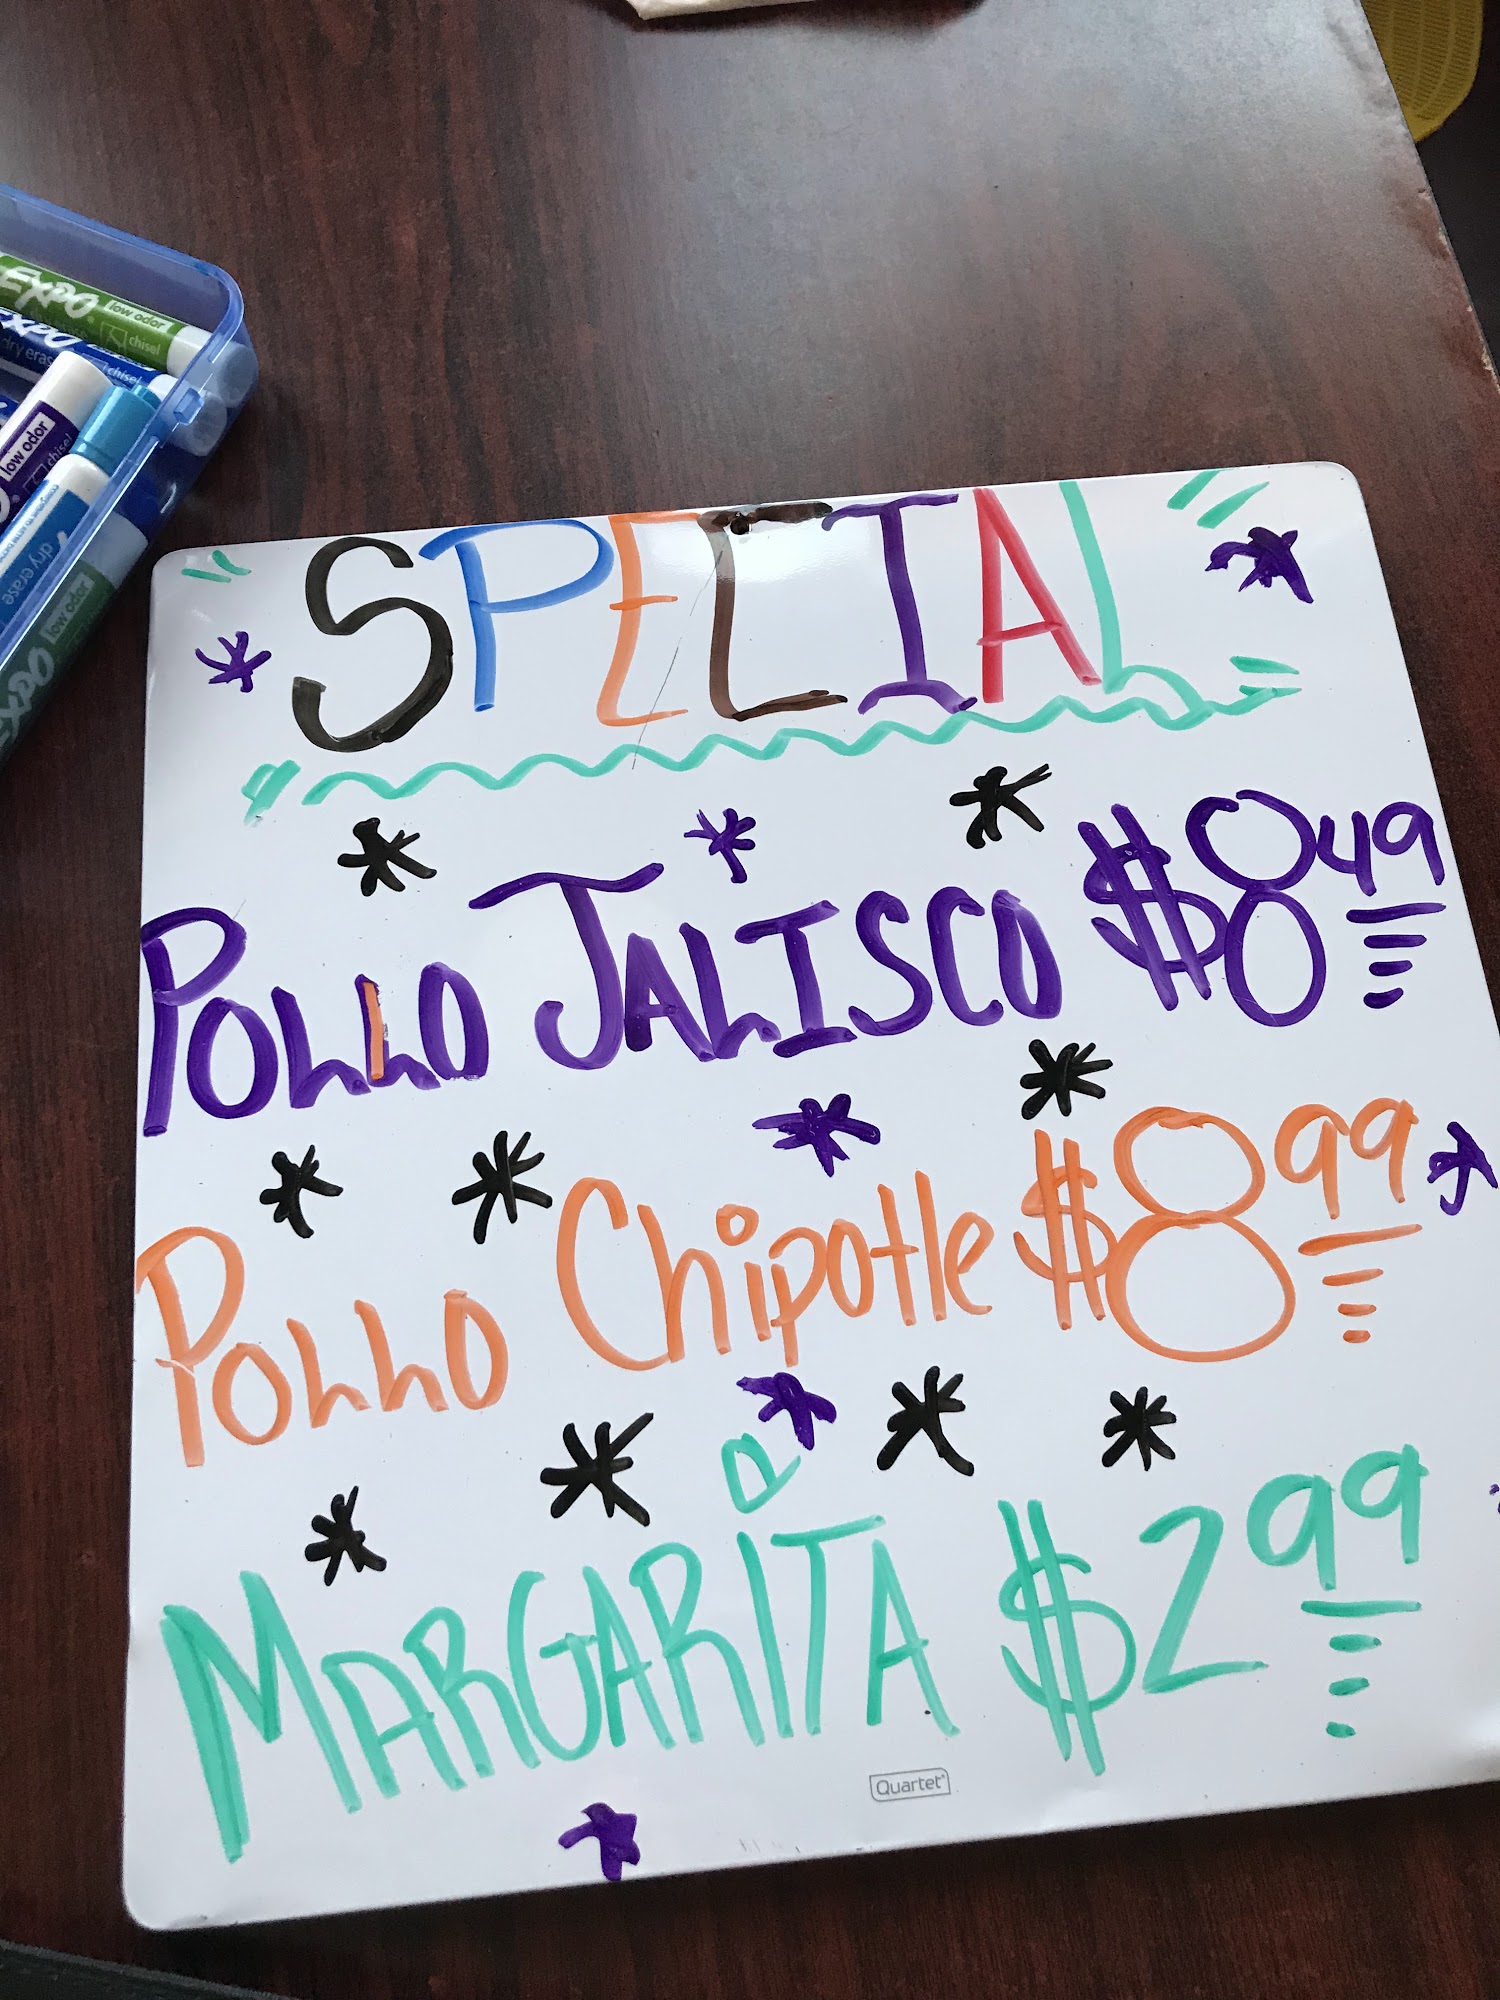 EXPO low odor
chisel
EXPO
dry eras
chisel
low odor
chisel
dry erase
low odor
EXPO
SPECIAL
POLLO JALISCO $8.49
POLLO Chipotle $8.99
MARGARITA $2.99
Quartet